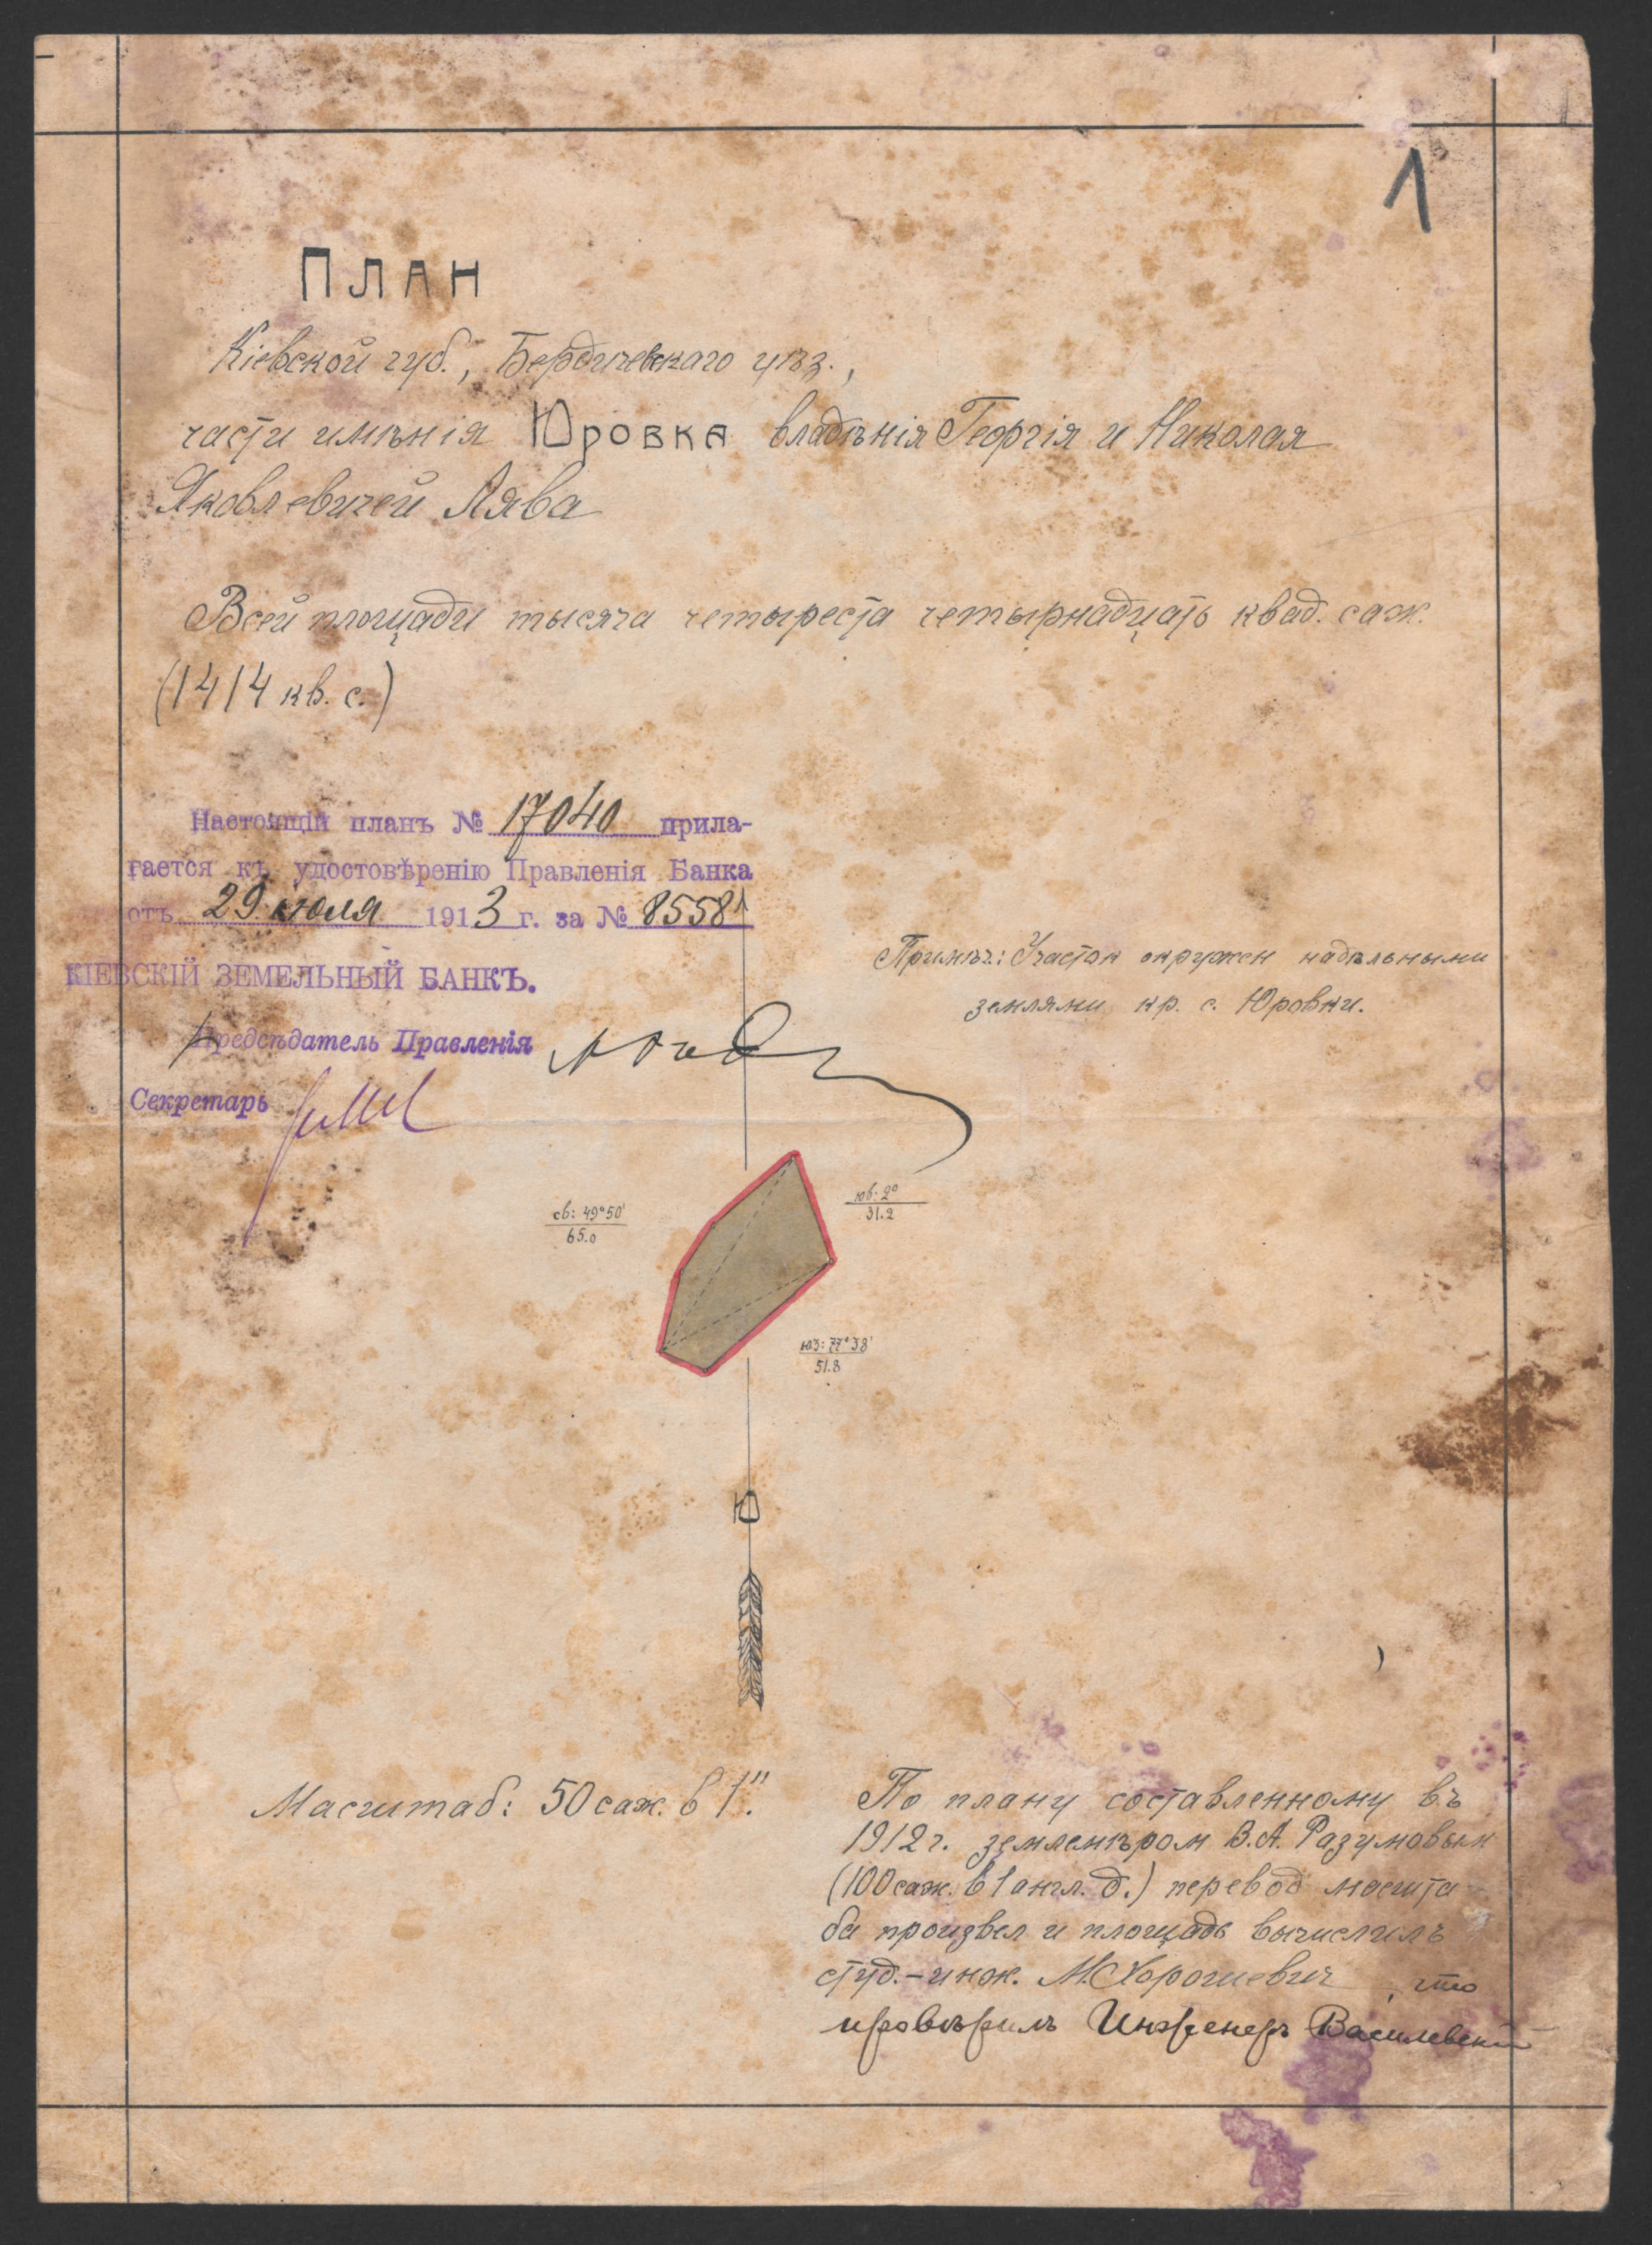 1
ПЛАН
Кіевской губ., Бердичевскаго уѣз.,
части имѣнія Юровка владѣнія Георгія и Николая
Яковлевичей Лява
Всей площади тысяча четыреста четырнадцать квад. саж.
(1414 кв. с.)
Настоящій планъ № 17040 прила-
гается къ удостовѣренію Правленія Банка
отъ 29 июля 1913 г. за № 8558
КІЕВСКІЙ ЗЕМЕЛЬНЫЙ БАНКЪ.
Предсѣдатель Правленія
Секретарь
Примѣч: Участок окружен надѣльными
землями кр. с. Юровки.
св: 49°50'
65.0
юв: 2°
31.2
юз: 77°38'
51.8
Ю
Масштаб: 50 саж. в 1".
По плану составленному въ
1912 г. землемѣром В.А. Разумовым
(100 саж. в 1 англ. д.) перевод масшта-
ба произвел и площадь вычислилъ
студ.-инж. М. Хорошевич, что
провѣрилъ Инженеръ Василевскій